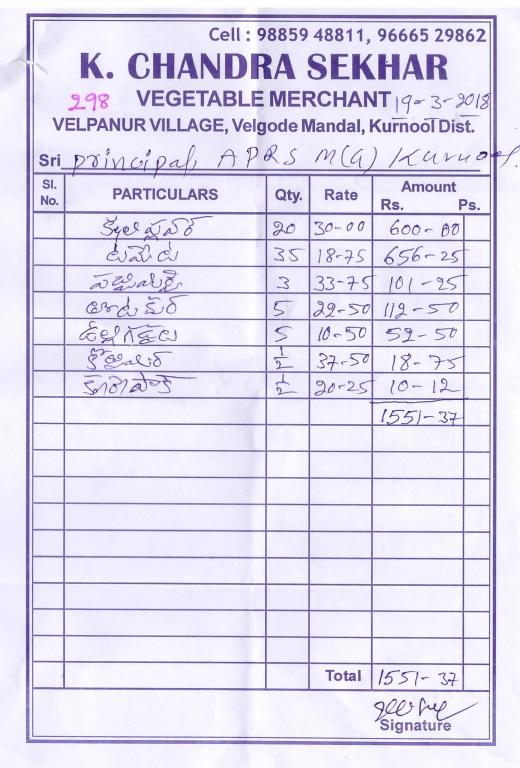 Cell : 98859 48811, 96665 29862
K. CHANDRA SEKHAR
298 VEGETABLE MERCHANT 19-3-2018
VELPANUR VILLAGE, Velgode Mandal, Kurnool Dist.
Sri principal, APRS M(G) Kurnool.
Sl. No. PARTICULARS Qty. Rate Amount Rs. Ps.
20 30-00 600-00
టమేట 35 18-75 656-25
3 33-75 101-25
5 22-50 112-50
5 10-50 52-50
½ 37-50 18-75
½ 20-25 10-12
1551-37
Total 1551-37
Signature